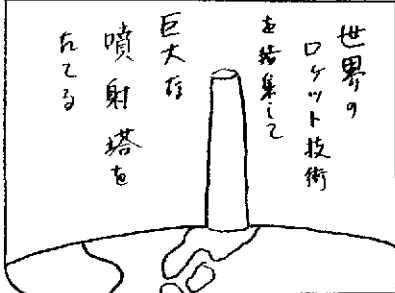 世界の
ロケット技術
を結集して
巨大な
噴射塔を
たてる